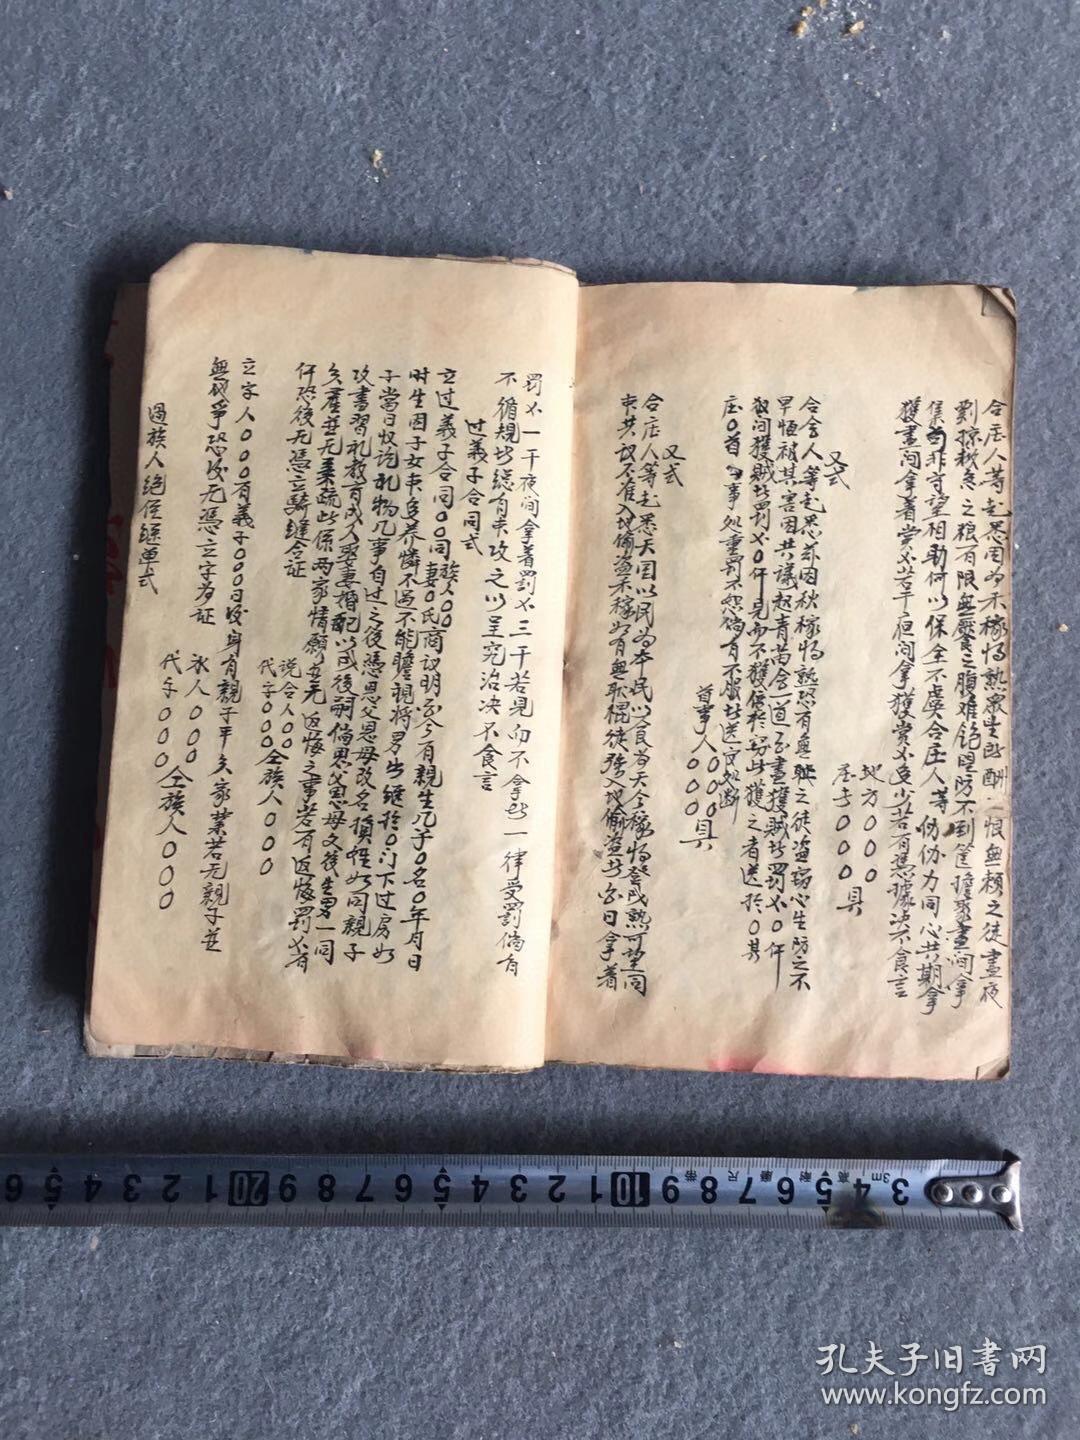 合庄人等起悉因为禾稼将熟众生出酬一恨無賴之徒晝夜
剽掠救急之狼有限無饜之腹难飽思防不到筐擔聚晝间拿
集自非守望相助何以保全不虞合庄人等仂仂力同心共期拿
獲晝间拿着賞㐅若干夜间拿獲賞㐅多少若有憑據决不食言
地方〇〇〇
庄長〇〇〇具
又式
合会人等起悉茲因秋稼将熟恐有無耻之徒盗窃心生防之不
早恒被其害因共議起青苗会一道至晝獲贼出罰㐅〇仟
夜间獲贼出罰㐅〇仟見而不獲倍於窃出獲之者送於〇其
庄〇首事处重罰不恕倘有不服出送官处断
首事人〇〇〇具
又式
合庄人等起悉天因以民为本民以食为天今稼将登成熟可望同
衆共议不准入地偷盗禾稼如有無耻棍徒强入地偷盗出白日拿着
罰㐅一干夜间拿着罰㐅三干若見而不拿出一律受罰倘有
不循規出總有衆攻之以呈究治决不食言
过義子合同式
立过義子合同〇〇同族人〇〇妻〇氏商议明白今有親生几子〇名〇年月日
时生因子女衆多养憐不過不能瞻視将男出继於〇门下过房如
子當日収訖礼物几事自过之後憑恩父恩母改名换姓如同親子
攻書習礼教育成人娶妻婚配以成後嗣倘恩父恩母又後生男一同
分産並无柔疏此係两家情願並无返悔之事若有返悔罰㐅若
仟恐後无憑立騎缝合证
说合人〇〇
代字〇〇〇
仝族人〇〇〇
立字人〇〇〇有義子〇〇〇日後身有親子平分家業若无親子並
無伐爭恐後无憑立字为证
氷人〇〇〇
代字〇〇〇
仝族人〇〇〇
過族人绝侄继单式
3 4 5 6 7 8 9 10 1 2 3 4 5 6 7 8 9 20 1 2 3 4 5 6
3m
孔夫子旧書网
www.kongfz.com